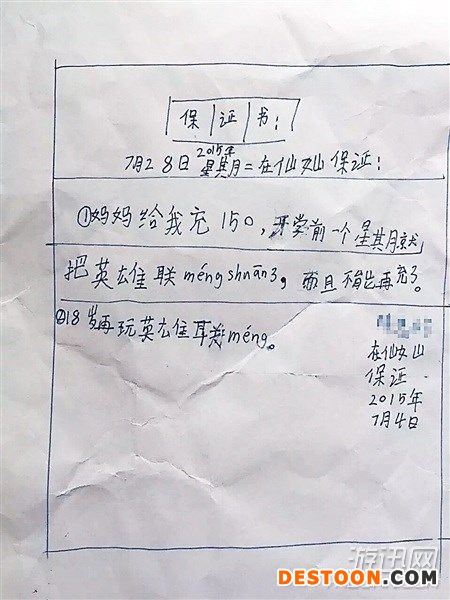 保证书：
2015年
7月28日星其月二在仙女山保证：
①妈妈给我充150，开学前一个星其月就
把英雄联méng shnān3，而且不能再充了。
②18岁再玩英雄联méng。
在仙女山
保证.
2015年
7月4日
游讯网
DESTOON.COM